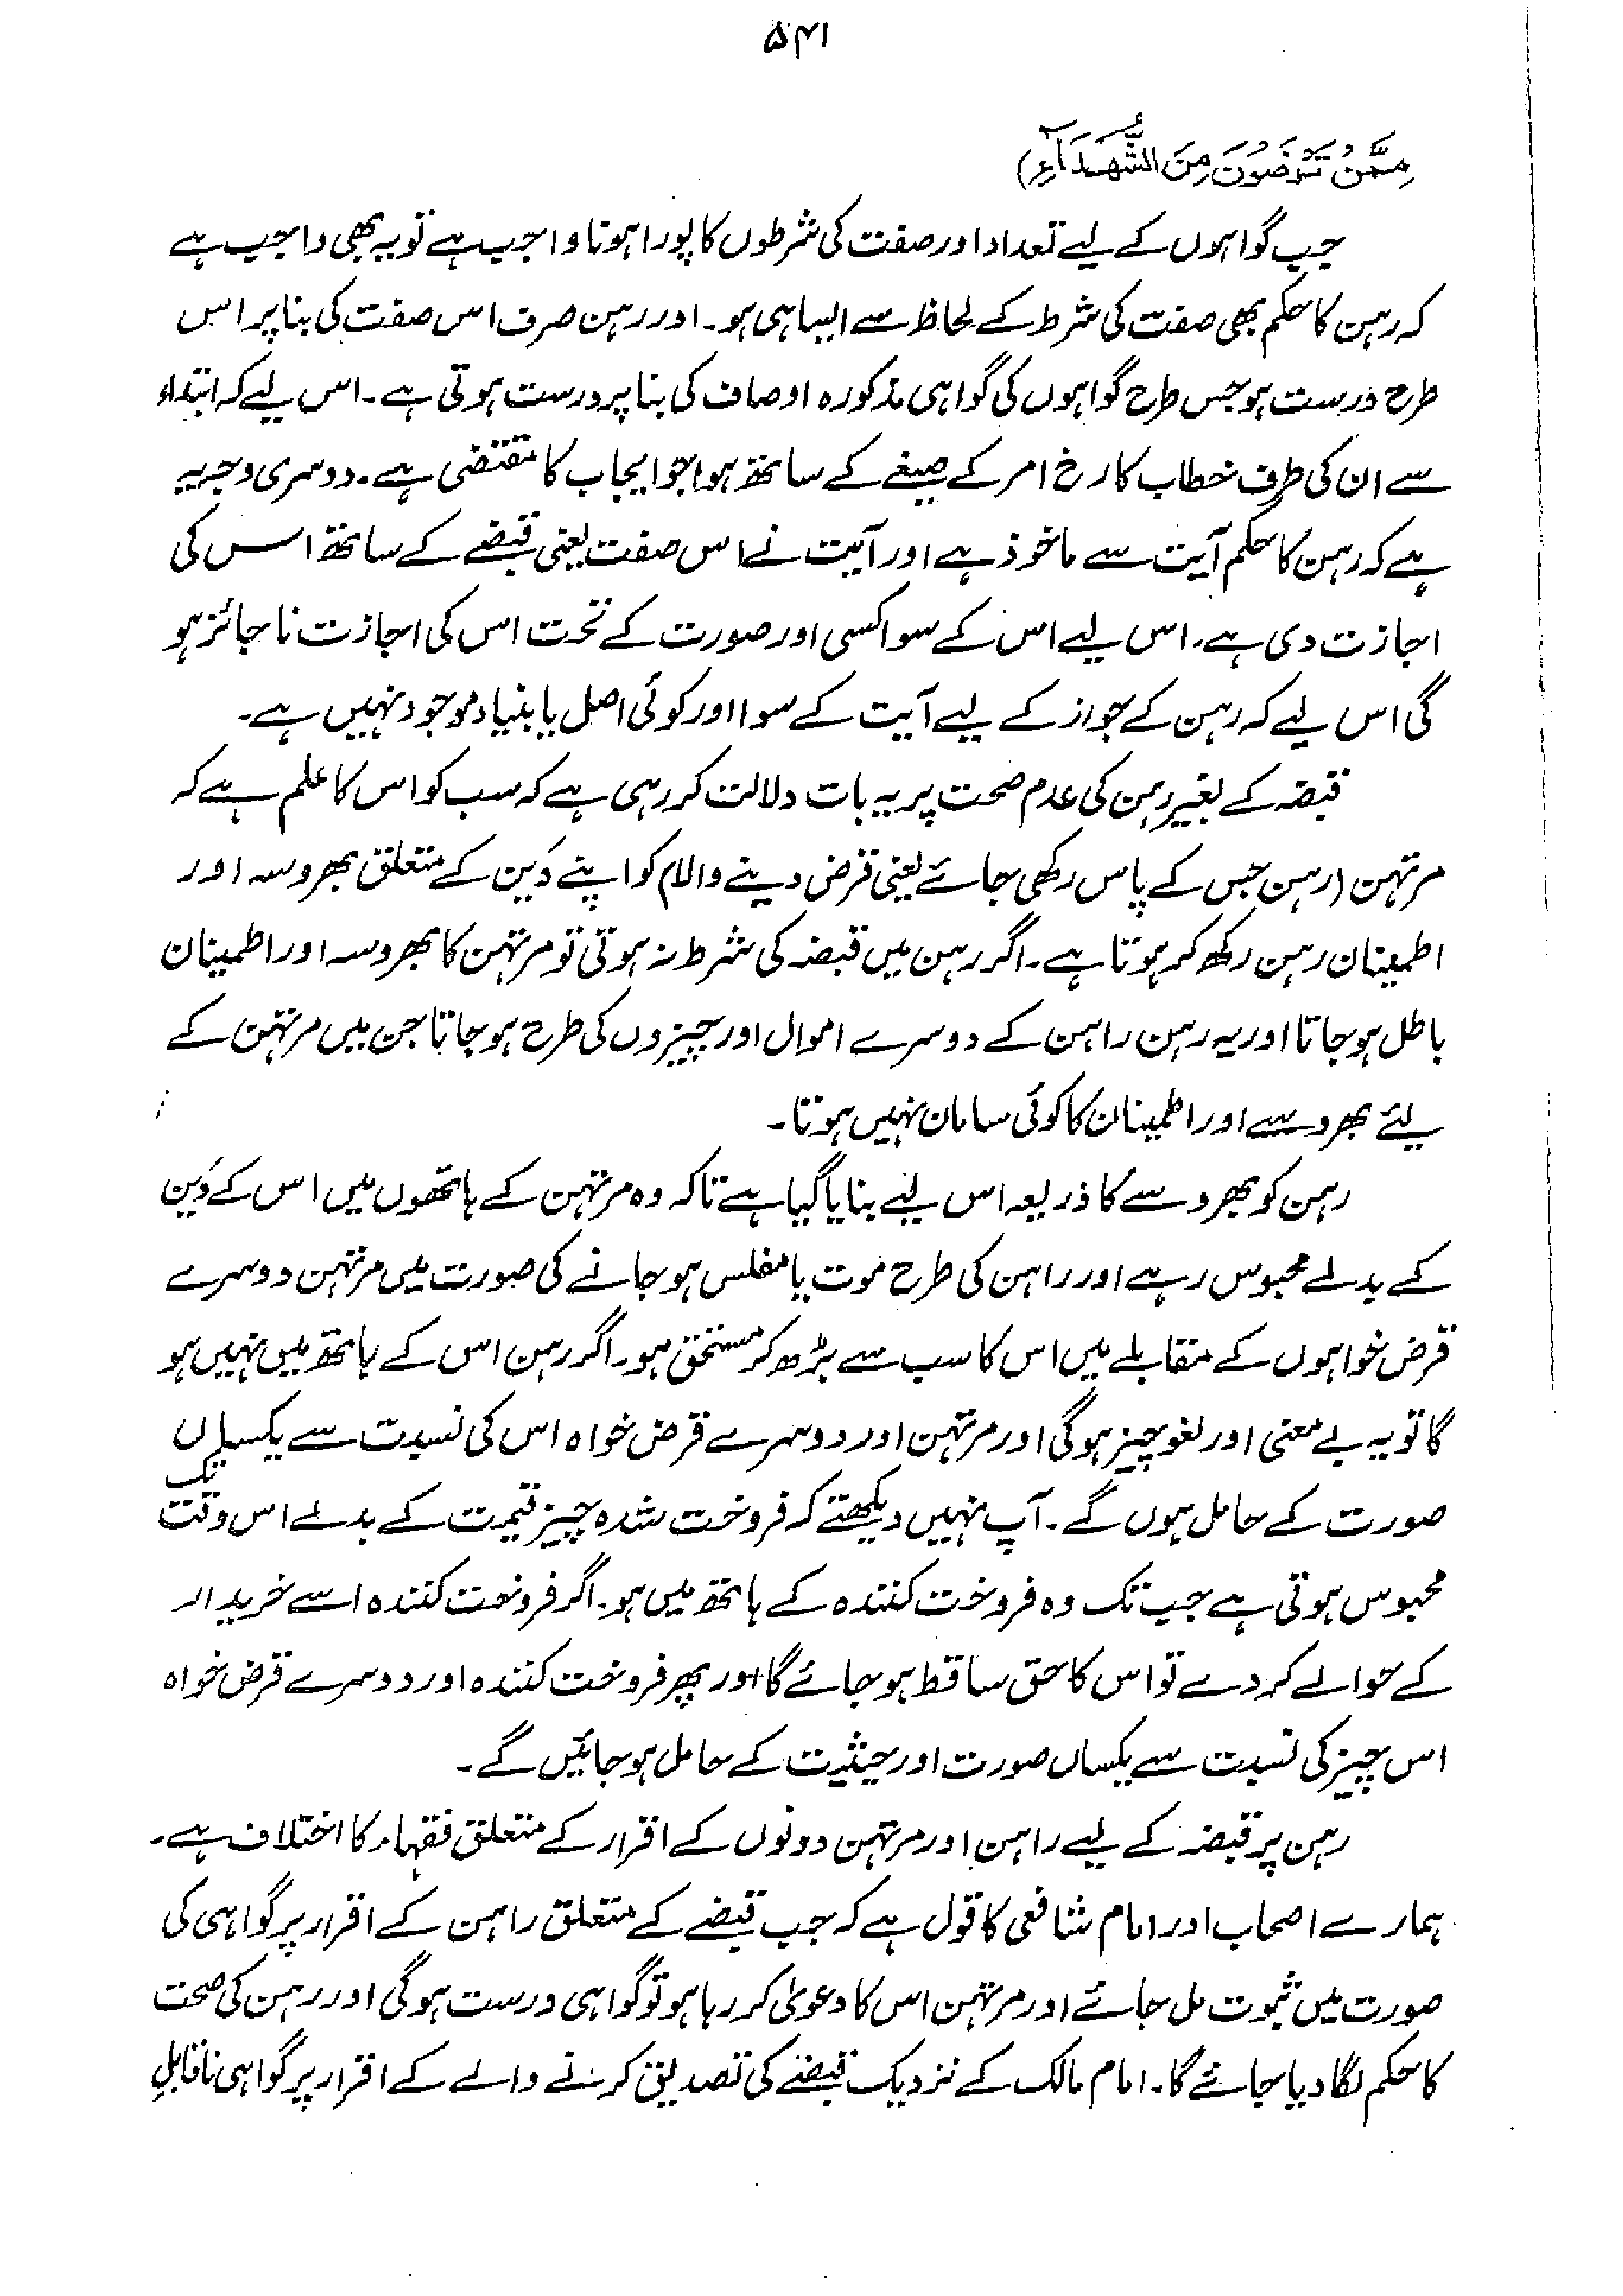 ۵۴۱
مِمَّنْ تَرْضَوْنَ مِنَ الشُّهَدَآءِ)
جب گواہوں کے لیے تعداد اور صفت کی شرطوں کا پورا ہونا واجب ہے تو یہ بھی واجب ہے
کہ رہن کا حکم بھی صفت کی شرط کے لحاظ سے ایسا ہی ہو۔ اور رہن صرف اس صفت کی بنا پر اس
طرح درست ہو جس طرح گواہوں کی گواہی مذکورہ اوصاف کی بنا پر درست ہوتی ہے۔ اس لیے کہ ابتداء
سے ان کی طرف خطاب کا رخ امر کے صیغے کے ساتھ ہوا جو ایجاب کا مقتضی ہے۔ دوسری وجہ یہ
ہے کہ رہن کا حکم آیت سے ماخوذ ہے اور آیت نے اس صفت یعنی قبضے کے ساتھ اس کی
اجازت دی ہے۔ اس لیے اس کے سوا کسی اور صورت کے تحت اس کی اجازت ناجائز ہو
گی اس لیے کہ رہن کے جواز کے لیے آیت کے سوا اور کوئی اصل یا بنیاد موجود نہیں ہے۔
قبضہ کے بغیر رہن کی عدم صحت پر یہ بات دلالت کر رہی ہے کہ سب کو اس کا علم ہے کہ
مرتہن (رہن جس کے پاس رکھی جائے یعنی قرض دینے والا) کو اپنے دَین کے متعلق بھروسہ اور
اطمینان رہن رکھ کر ہوتا ہے۔ اگر رہن میں قبضہ کی شرط نہ ہوتی تو مرتہن کا بھروسہ اور اطمینان
باطل ہو جاتا اور یہ رہن راہن کے دوسرے اموال اور چیزوں کی طرح ہو جاتا جن میں مرتہن کے
لئے بھروسے اور اطمینان کا کوئی سامان نہیں ہوتا۔
رہن کو بھروسے کا ذریعہ اس لیے بنایا گیا ہے تاکہ وہ مرتہن کے ہاتھوں میں اس کے دَین
کے بدلے محبوس رہے اور راہن کی طرح موت یا مفلس ہو جانے کی صورت میں مرتہن دوسرے
قرض خواہوں کے مقابلے میں اس کا سب سے بڑھ کر مستحق ہو۔ اگر رہن اس کے ہاتھ میں نہیں ہو
گا تو یہ بے معنی اور لغو چیز ہو گی اور مرتہن اور دوسرے قرض خواہ اس کی نسبت سے یکساں
صورت کے حامل ہوں گے۔ آپ نہیں دیکھتے کہ فروخت شدہ چیز قیمت کے بدلے اس وقت تک
محبوس ہوتی ہے جب تک وہ فروخت کنندہ کے ہاتھ میں ہو۔ اگر فروخت کنندہ اسے خریدار
کے حوالے کر دے تو اس کا حق ساقط ہو جائے گا اور پھر فروخت کنندہ اور دوسرے قرض خواہ
اس چیز کی نسبت سے یکساں صورت اور حیثیت کے حامل ہو جائیں گے۔
رہن پر قبضہ کے لیے راہن اور مرتہن دونوں کے اقرار کے متعلق فقہاء کا اختلاف ہے۔
ہمارے اصحاب اور امام شافعی کا قول ہے کہ جب قبضے کے متعلق راہن کے اقرار پر گواہی کی
صورت میں ثبوت مل جائے اور مرتہن اس کا دعویٰ کر رہا ہو تو گواہی درست ہو گی اور رہن کی صحت
کا حکم لگا دیا جائے گا۔ امام مالک کے نزدیک قبضے کی تصدیق کرنے والے کے اقرار پر گواہی ناقابلِ